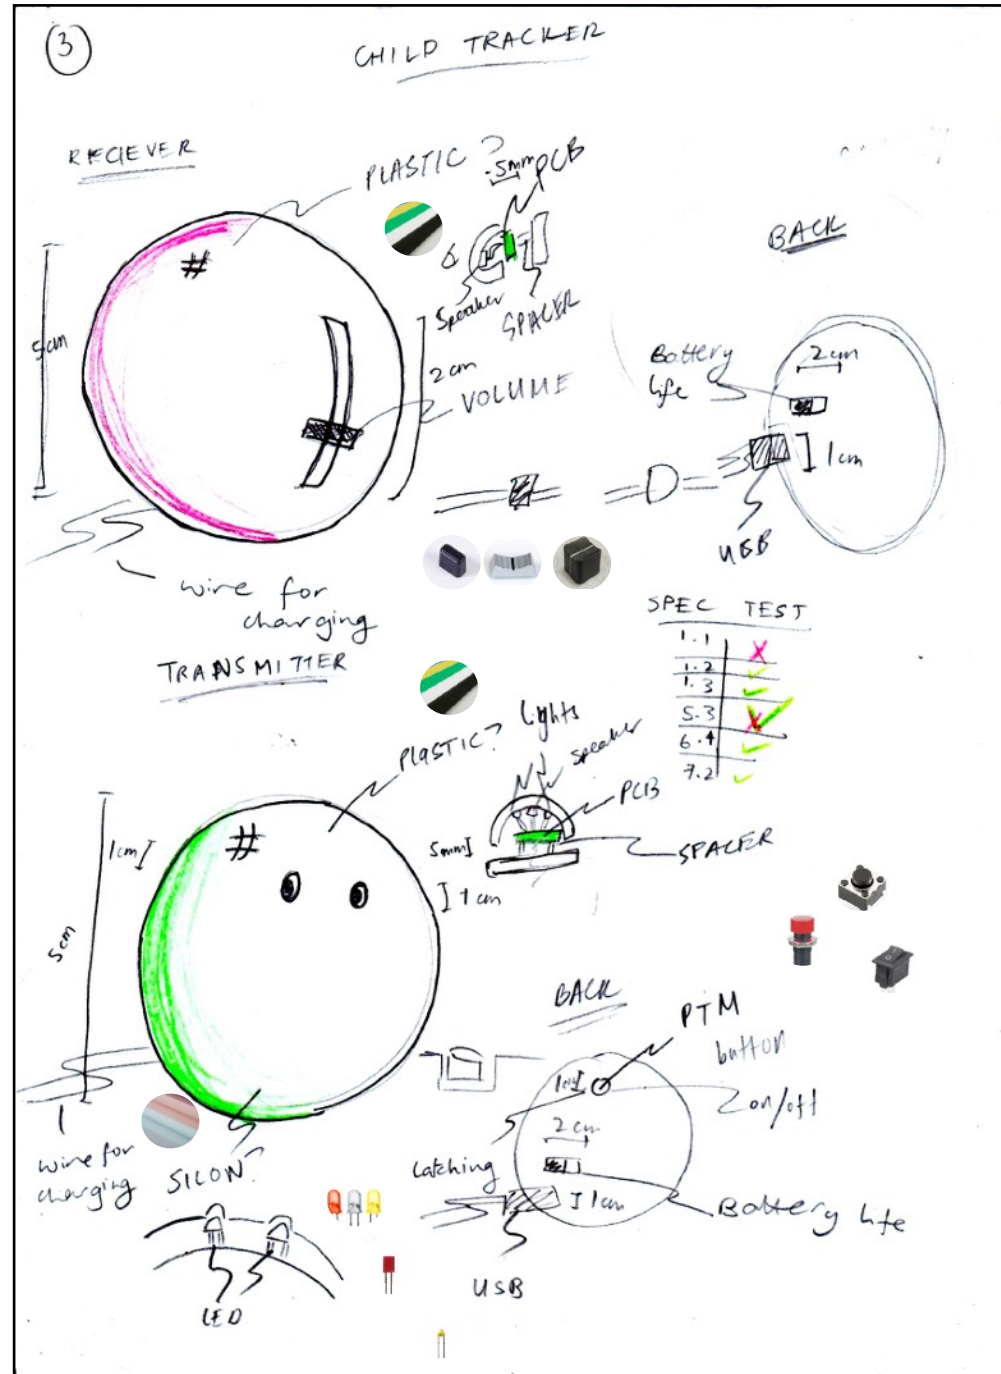 3
CHILD TRACKER
RECIEVER
PLASTIC?
.5mm
PCB
#
5cm
Speaker
SPACER
2 cm
VOLUME
wire for
charging
BACK
Battery
life
2cm
1cm
USB
SPEC TEST
1.1
1.2
1.3
5.3
6.4
7.2
TRANSMITTER
PLASTIC?
lights
speaker
PCB
5mm
SPACER
1 cm
1cm
#
5cm
wire for
charging
SILON?
LED
BACK
PTM
button
on/off
1cm
2 cm
Latching
1cm
Battery life
USB